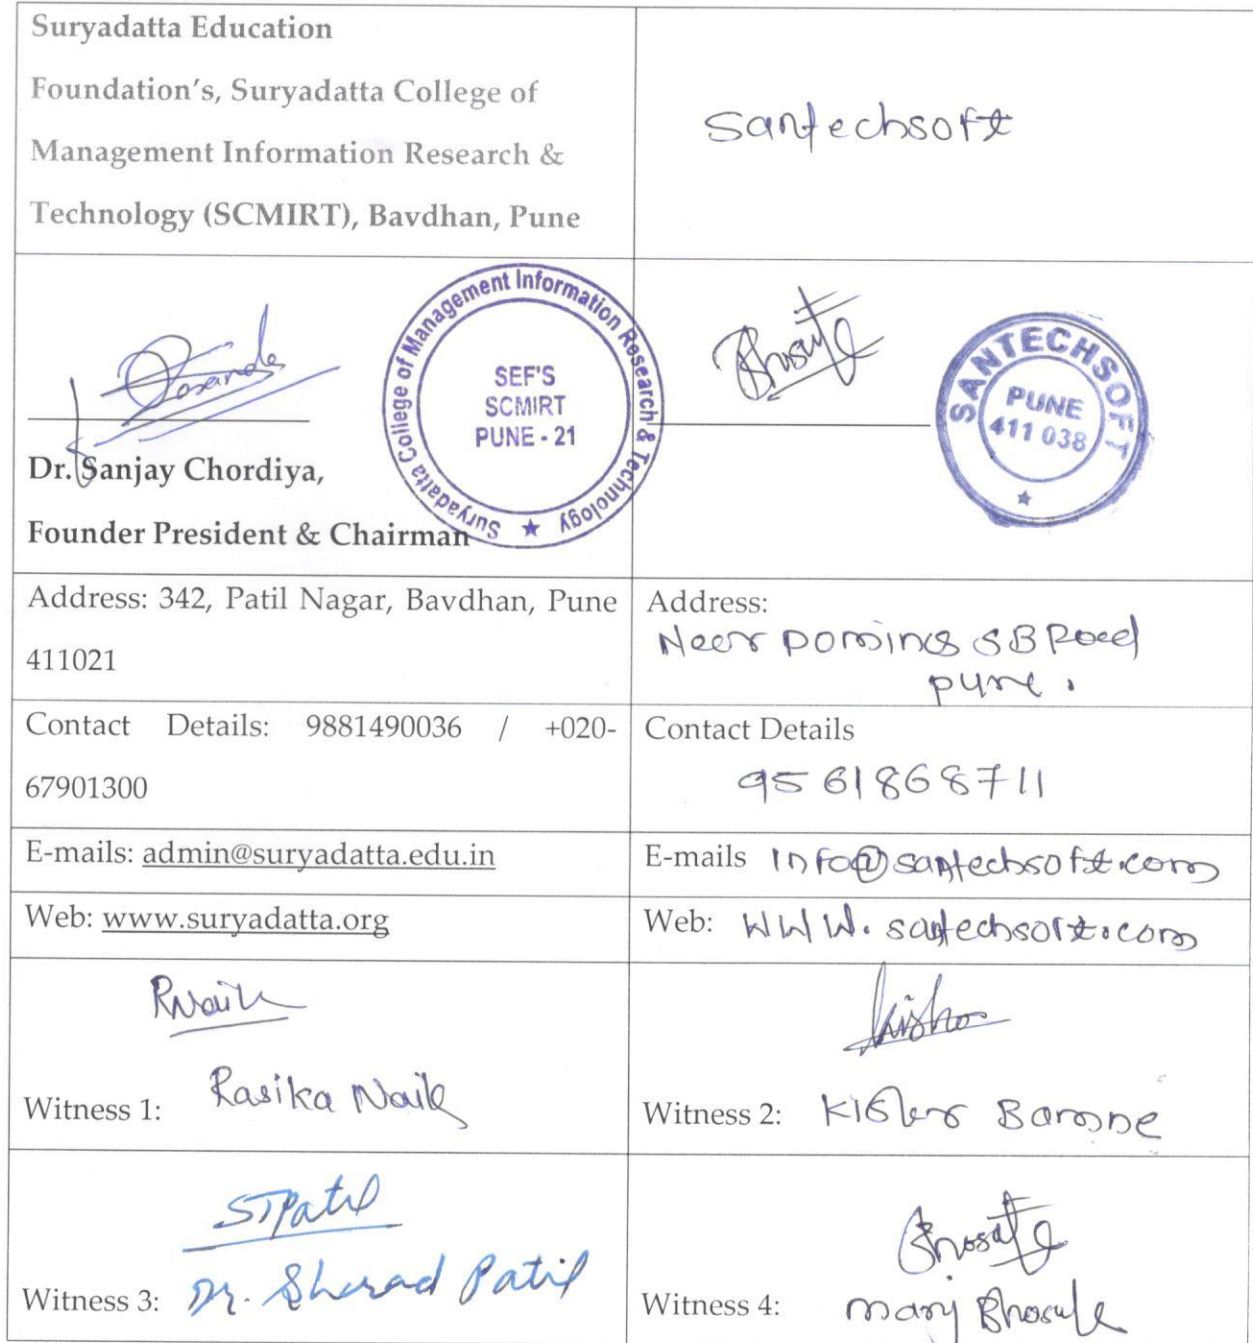 Suryadatta Education
Foundation's, Suryadatta College of
Management Information Research &
Technology (SCMIRT), Bavdhan, Pune
Santechsoft
Suryadatta College of Management Information Research & Technology
SEF'S
SCMIRT
PUNE - 21
Dr. Sanjay Chordiya,
Founder President & Chairman
Bhosale
SANTECHSOFT
PUNE
411 038
Address: 342, Patil Nagar, Bavdhan, Pune
411021
Address:
Near Dominos SB Road
pune.
Contact Details: 9881490036 / +020-
67901300
Contact Details
9561868711
E-mails: admin@suryadatta.edu.in
E-mails info@santechsoft.com
Web: www.suryadatta.org
Web: WWW.santechsoft.com
RNaik
Witness 1: Rasika Naik
Kishor
Witness 2: Kishor
STPatil
Witness 3: Dr. Sharad Patil
Bhosale
Witness 4: Bhosale